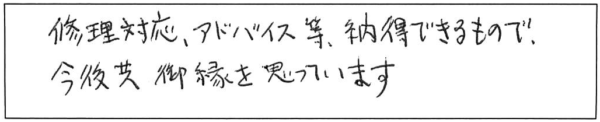 修理対応、アドバイス等、納得できるもので、
今後共 御縁を思っています